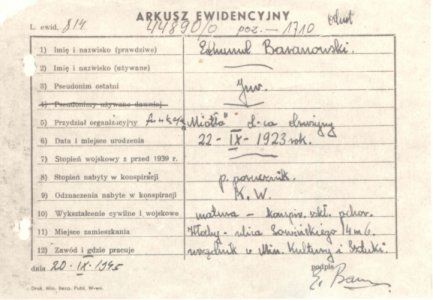 ARKUSZ EWIDENCYJNY
L. ewid. 814 44890/0 poz. – 1710
1) Imię i nazwisko (prawdziwe) Edmund Baranowski.
2) Imię i nazwisko (używane)
3) Pseudonim ostatni Jur.
4) Pseudonimy używane dawniej
5) Przydział organizacyjny „Miotła" d-ca drużyny
6) Data i miejsce urodzenia 22-IX-1923 rok.
7) Stopień wojskowy z przed 1939 r.
8) Stopień nabyty w konspiracji p. porucznik.
9) Odznaczenia nabyte w konspiracji K. W.
10) Wykształcenie cywilne i wojskowe matura – konspir. szk. pchor.
11) Miejsce zamieszkania Włochy - ulica Sowińskiego 14 m 6.
12) Zawód i gdzie pracuje urzędnik w Min. Kultury i Sztuki.
dnia 20-IX-1945 podpis
Druk. Min. Bezp. Publ. W-wa.